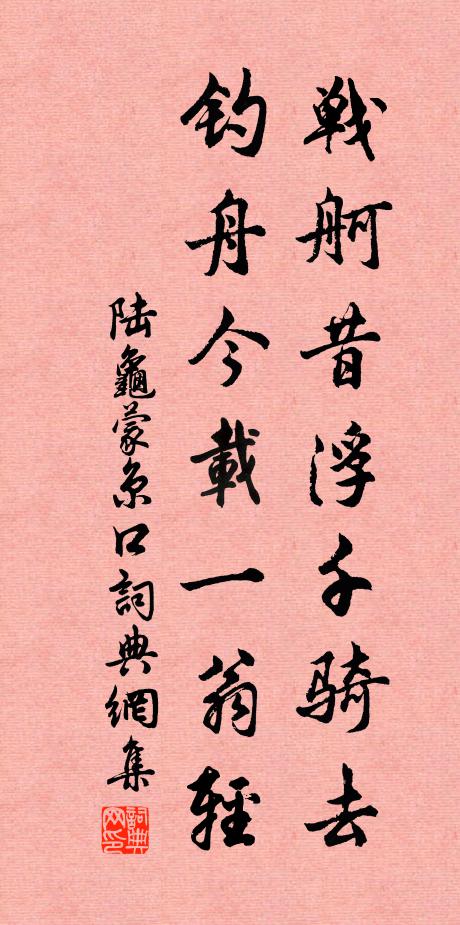 戦舸昔浮千骑去
釣舟今載一翁輕
陆龜蒙京口詞典網集
詞典网印